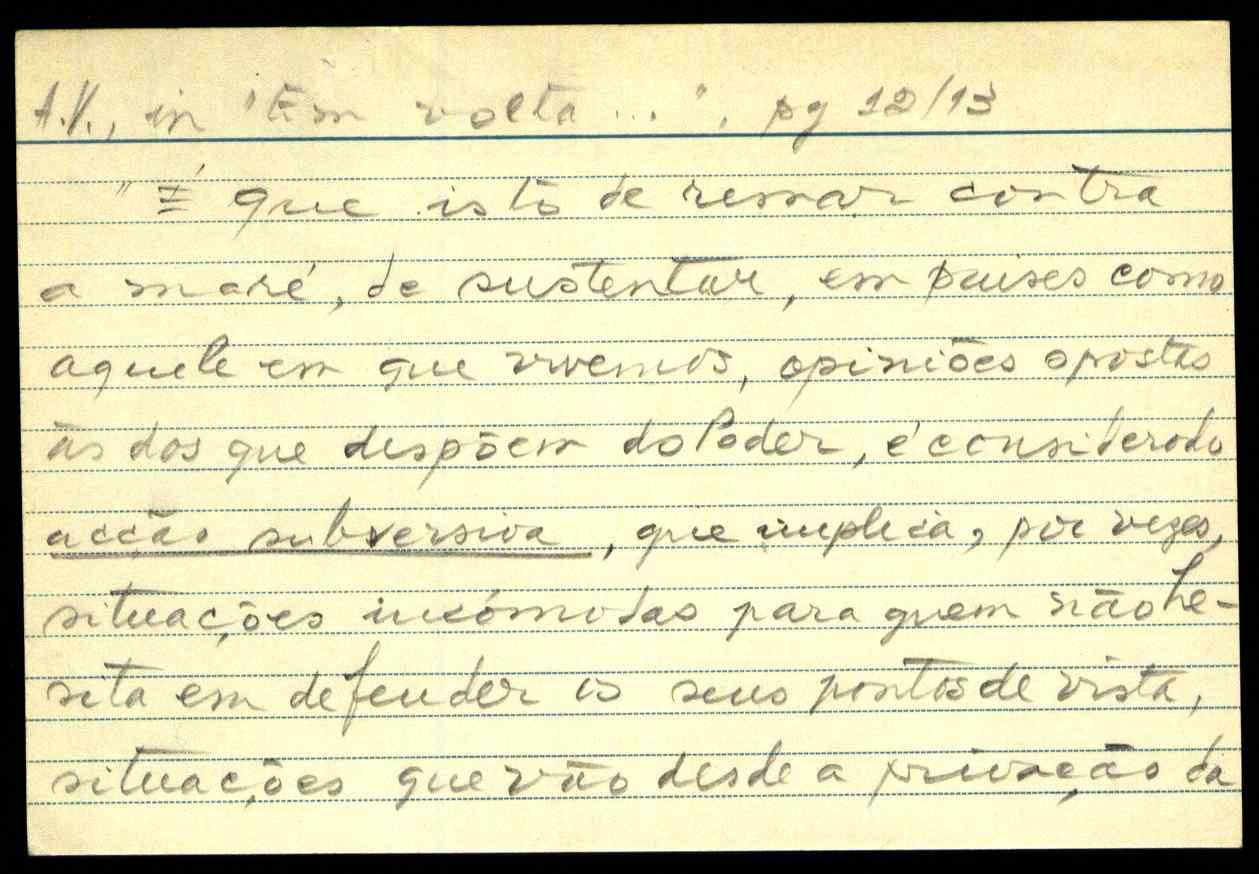 A.V., in "Em volta ...", pg 12/13
"É que isto de remar contra
a maré, de sustentar, em países como
aquele em que vivemos, opiniões opostas
às dos que dispõem do Poder, é considerado
acção subversiva, que implica, por vezes,
situações incómodas para quem não he-
sita em defender os seus pontos de vista,
situações que vão desde a privação da